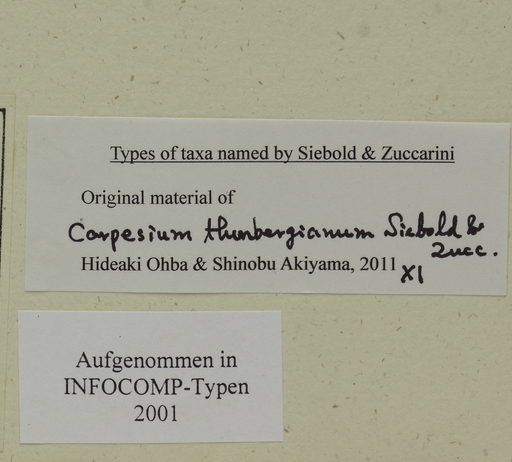 Types of taxa named by Siebold & Zuccarini
Original material of
Carpesium thunbergianum Siebold &
Zucc.
Hideaki Ohba & Shinobu Akiyama, 2011
XI
Aufgenommen in
INFOCOMP-Typen
2001